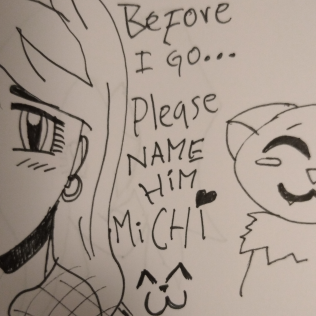 BEFORE
I GO...
Please
NAME
HiM
MiCHI